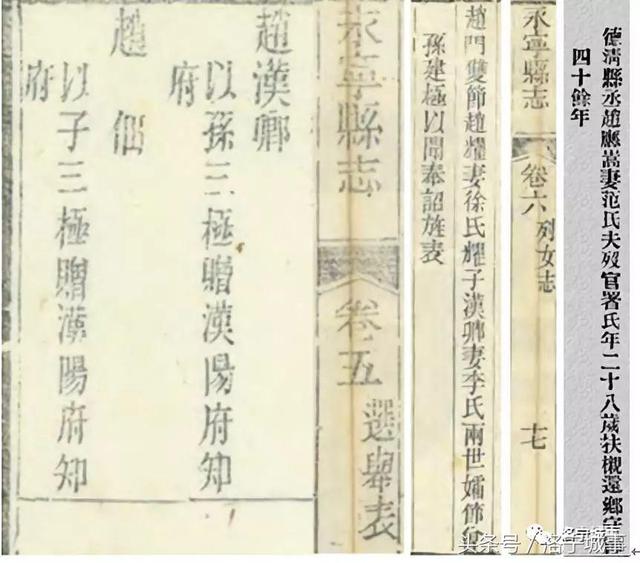 德清縣丞趙應嵩妻范氏夫歿官署氏年二十八歲扶櫬還鄉守
四十餘年
永寧縣志 卷六 列女志 十七
趙門雙節趙耀妻徐氏耀子漢卿妻李氏兩世孀節行
孫建極以聞奉詔旌表
永寧縣志 卷五 選舉表
趙漢卿
以孫三極贈漢陽府知
府
趙
以子三極贈漢陽府知
府
洛宁城事
头条号/洛宁城事